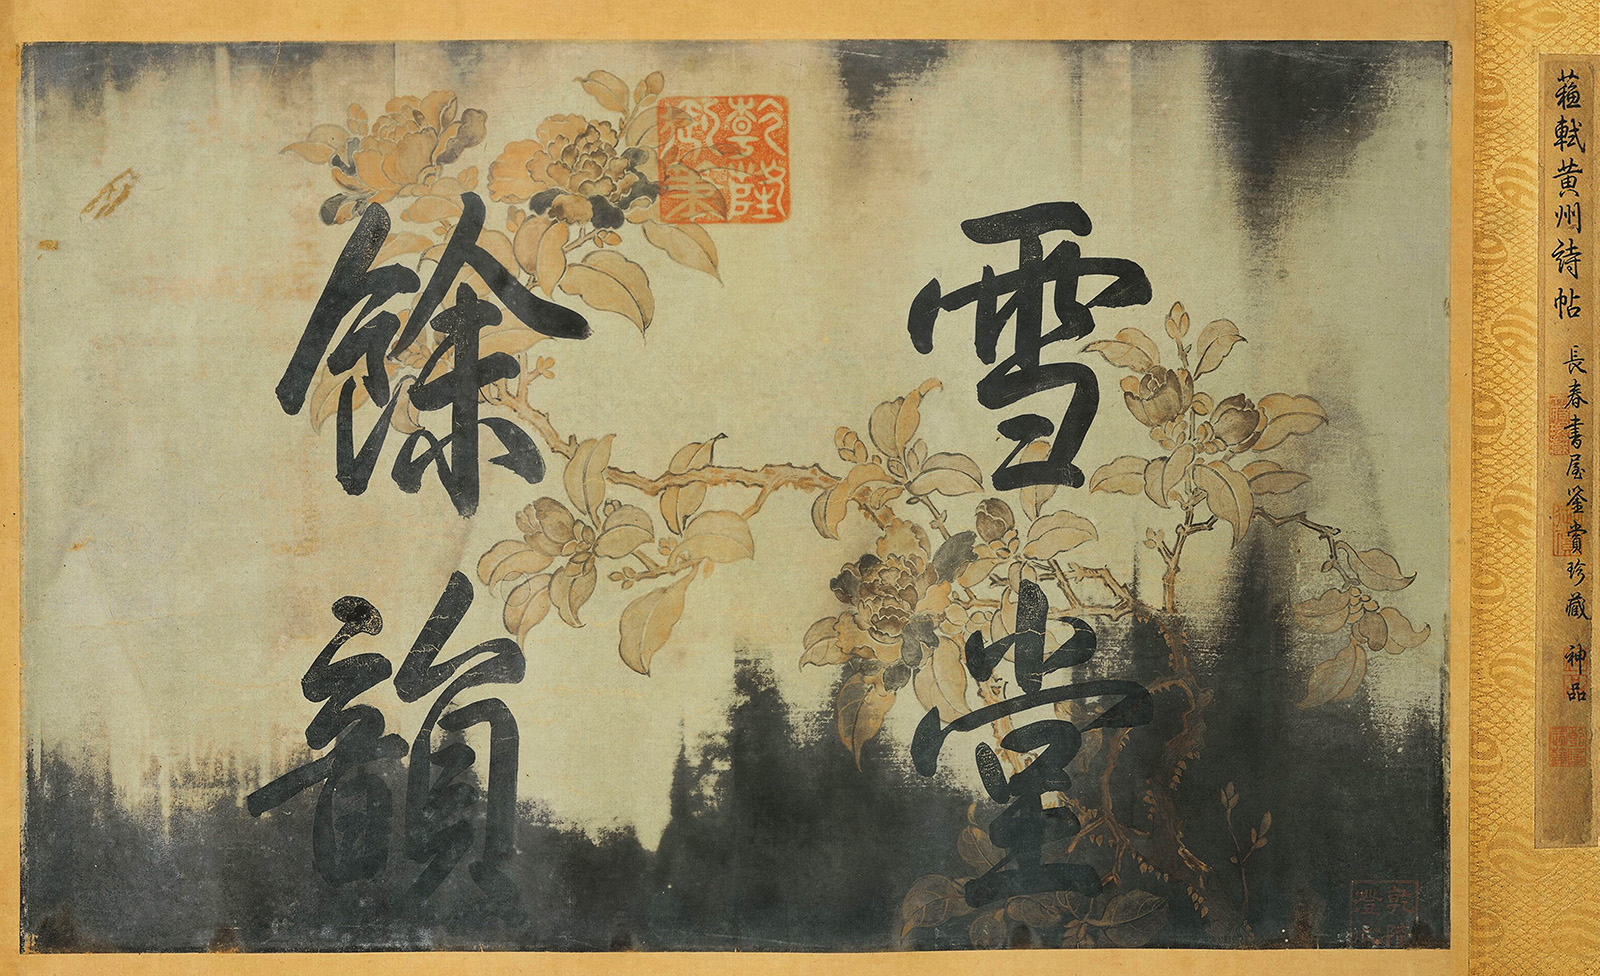 蘇軾黄州詩帖 長春書屋鉴賞珍藏 神品
雪堂
餘韻
乾隆
御筆